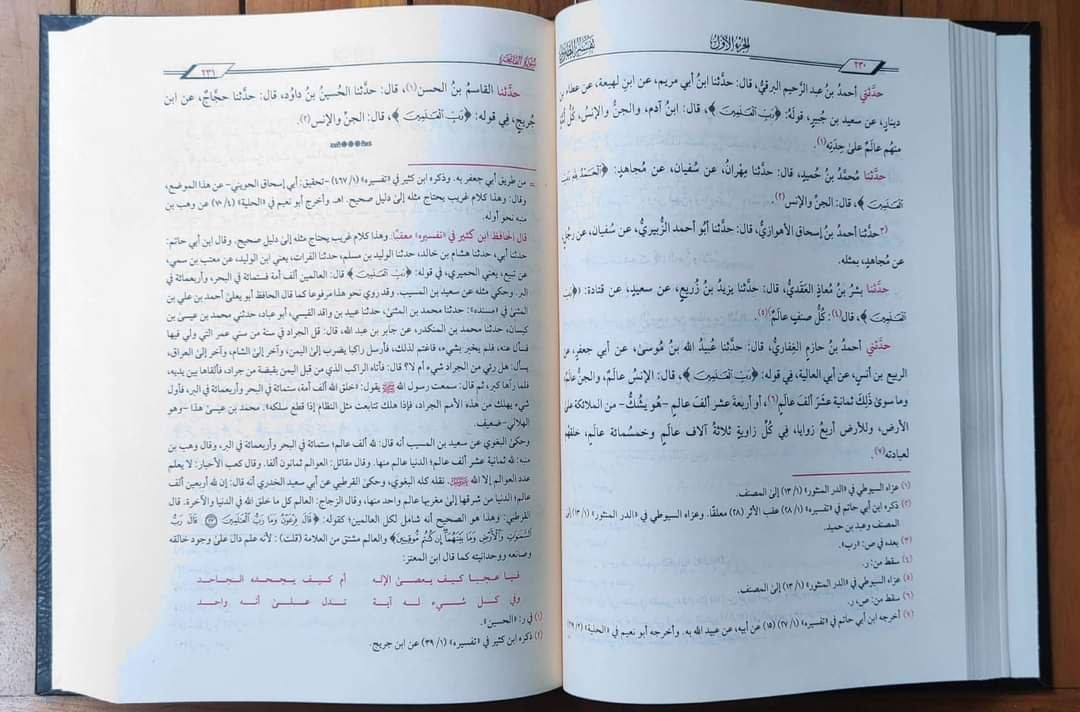 ٢٣٠
الجزء الأول
تفسير الطبري
حدَّثني أحمدُ بنُ عبدِ الرَّحيمِ البرقيُّ، قال: حدَّثنا ابنُ أبي مريم، عن ابنِ لهيعة، عن عطاءِ بنِ
دينارٍ، عن سعيد بن جُبيرٍ، قولَهُ: ﴿رَبِّ ٱلْعَٰلَمِينَ﴾، قال: ابنُ آدم، والجنُّ والإنس، كُلُّ أُمَّةٍ
منهُم عالَمٌ علىٰ حِدَتِه(١).
حدَّثنا مُحمَّدُ بنُ حُميدٍ، قال: حدَّثنا مِهْرانُ، عن سُفيانَ، عن مُجاهدٍ: ﴿ٱلْحَمْدُ لِلَّهِ رَبِّ
ٱلْعَٰلَمِينَ﴾، قال: الجنِّ والإنسِ(٢).
(٣)حدَّثنا أحمدُ بنُ إسحاقَ الأهوازيُّ، قال: حدَّثنا أبُو أحمدَ الزُّبيريُّ، عن سُفيان، عن رجُلٍ
عن مُجاهدٍ، بمثله.
حدَّثنا بشرُ بنُ مُعاذٍ العَقَديُّ، قال: حدَّثنا يزيدُ بنُ زُريعٍ، عن سعيدٍ، عن قتادة: ﴿رَبِّ
ٱلْعَٰلَمِينَ﴾، قال(٤): كُلُّ صنفٍ عالَمٌ(٥).
حدَّثني أحمدُ بنُ حازمٍ الغِفاريُّ، قال: حدَّثنا عُبيدُ اللهِ بنُ مُوسىٰ، عن أبي جعفرٍ، عن
الربيع بن أنسٍ، عن أبي العالية، في قوله: ﴿رَبِّ ٱلْعَٰلَمِينَ﴾، قال: الإنسُ عالَمٌ، والجنُّ عالمٌ،
وما سوىٰ ذٰلِكَ ثمانيةَ عَشَرَ ألفَ عالَمٍ(٦)، أو أربعةَ عشر ألف عالمٍ -هُو يشُكُّ- من الملائكةِ علىٰ
الأرض، وللأرض أربعُ زوايا، فِي كُلِّ زاويةٍ ثلاثةُ آلاف عالَمٍ وخمسُمائة عالمٍ، خلقهُم
لعبادته(٧).
(١) عزاه السيوطي في «الدر المنثور» (١/ ١٣) إلىٰ المصنف.
(٢) ذكره ابن أبي حاتم في «تفسيره» (١/ ٢٨) عقب الأثر (٢٨) معلقًا. وعزاه السيوطي في «الدر المنثور» (١/ ١٣) إلىٰ
المصنف وعبد بن حميد.
(٣) بعده في ص: «رب».
(٤) سقط من: ر.
(٥) عزاه السيوطي في «الدر المنثور» (١/ ١٣) إلىٰ المصنف.
(٦) سقط من: ص، ر.
(٧) أخرجه ابن أبي حاتم في «تفسيره» (١/ ٢٧) (١٥) عن أبيه، عن عبيد الله به. وأخرجه أبو نعيم في «الحلية»
سورة الفاتحة
٢٣١
حدَّثنا القاسمُ بنُ الحسن(١)، قال: حدَّثنا الحُسينُ بنُ داوُد، قال: حدَّثنا حجَّاجٌ، عن ابن
جُريجٍ، فِي قوله: ﴿رَبِّ ٱلْعَٰلَمِينَ﴾، قال: الجنُّ والإنس(٢).
= من طريق أبي جعفر به. وذكره ابن كثير في «تفسيره» (١/ ٤٦٧) -تحقيق: أبي إسحاق الحويني- عن هذا الموضع،
وقال: وهذا كلام غريب يحتاج مثله إلىٰ دليل صحيح. اهـ. وأخرج أبو نعيم في «الحلية» (٤/ ٧٠) عن وهب بن
منبه نحو أوله.
قال الحافظ ابن كثير في «تفسيره» معقبًا: وهذا كلام غريب يحتاج مثله إلىٰ دليل صحيح. وقال ابن أبي حاتم:
حدثنا أبي، حدثنا هشام بن خالد، حدثنا الوليد بن مسلم، حدثنا الفرات، يعني ابن الوليد، عن معتب بن سمي،
عن تبيع، يعني الحميري، في قوله: ﴿رَبِّ ٱلْعَٰلَمِينَ﴾ قال: العالمين ألف أمة فستمائة في البحر، وأربعمائة في
البر. وحكي مثله عن سعيد بن المسيب. وقد روي نحو هذا مرفوعا كما قال الحافظ أبو يعلىٰ أحمد بن علي بن
المثنىٰ في «مسنده»: حدثنا محمد بن المثنىٰ، حدثنا عبيد بن واقد القيسي، أبو عباد، حدثني محمد بن عيسىٰ بن
كيسان، حدثنا محمد بن المنكدر، عن جابر بن عبد الله، قال: قل الجراد في سنة من سني عمر التي ولي فيها
فسأل عنه، فلم يخبر بشيء، فاغتم لذلك، فأرسل راكبا يضرب إلىٰ اليمن، وآخر إلىٰ الشام، وآخر إلىٰ العراق،
يسأل: هل رئي من الجراد شيء أم لا؟ قال: فأتاه الراكب الذي من قبل اليمن بقبضة من جراد، فألقاها بين يديه،
فلما رآها كبر، ثم قال: سمعت رسول الله ﷺ يقول: «خلق الله ألف أمة، ستمائة في البحر وأربعمائة في البر، فأول
شيء يهلك من هذه الأمم الجراد، فإذا هلك تتابعت مثل النظام إذا قطع سلكه». محمد بن عيسىٰ هذا -وهو
الهلالي- ضعيف.
وحكىٰ البغوي عن سعيد بن المسيب أنه قال: لله ألف عالم؛ ستمائة في البحر وأربعمائة في البر، وقال وهب بن
منبه: لله ثمانية عشر ألف عالم؛ الدنيا عالم منها. وقال مقاتل: العوالم ثمانون ألفا. وقال كعب الأحبار: لا يعلم
عدد العوالم إلا الله ﷻ. نقله كله البغوي، وحكىٰ القرطبي عن أبي سعيد الخدري أنه قال: إن لله أربعين ألف
عالم؛ الدنيا من شرقها إلىٰ مغربها عالم واحد منها، وقال الزجاج: العالم كل ما خلق الله في الدنيا والآخرة. قال
القرطبي: وهذا هو الصحيح أنه شامل لكل العالمين؛ كقوله: ﴿قَالَ فِرْعَوْنُ وَمَا رَبُّ ٱلْعَٰلَمِينَ ٢٣ قَالَ رَبُّ
ٱلسَّمَٰوَٰتِ وَٱلْأَرْضِ وَمَا بَيْنَهُمَآ إِن كُنتُم مُّوقِنِينَ﴾ والعالم مشتق من العلامة (قلت): لأنه علم دال علىٰ وجود خالقه
وصانعه ووحدانيته كما قال ابن المعتز:
فيا عجبا كيف يعصىٰ الإله أم كيف يجحده الجاحد
وفي كل شيء له آية تدل علىٰ أنه واحد
(١) في ر: «الحسين».
(٢) ذكره ابن كثير في «تفسيره» (١/ ٣٩) عن ابن جريج.